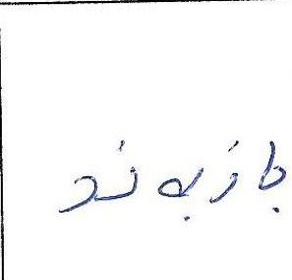 بازبه ند